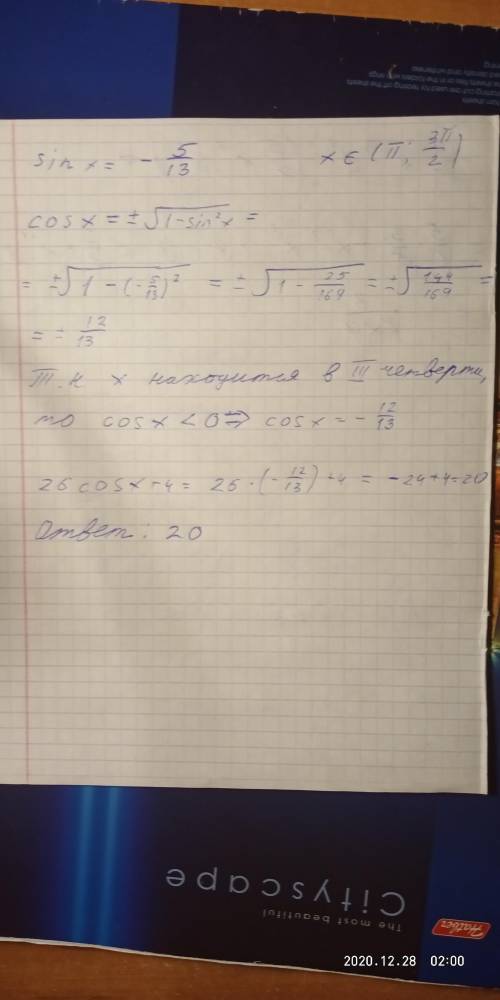 sin x = - 5/13 x ∈ (π; 3π/2)
cos x = ± √(1-sin²x) =
= ± √(1 - (-5/13)²) = ± √(1 - 25/169) = ± √(144/169) =
= ± 12/13
Т.к x находится в III четверти,
то cos x < 0 ⇒ cos x = - 12/13
26 cos x + 4 = 26 · (- 12/13) + 4 = -24+4=20
Ответ: 20
Cityscape
The most beautiful
Hatber
2020.12.28 02:00